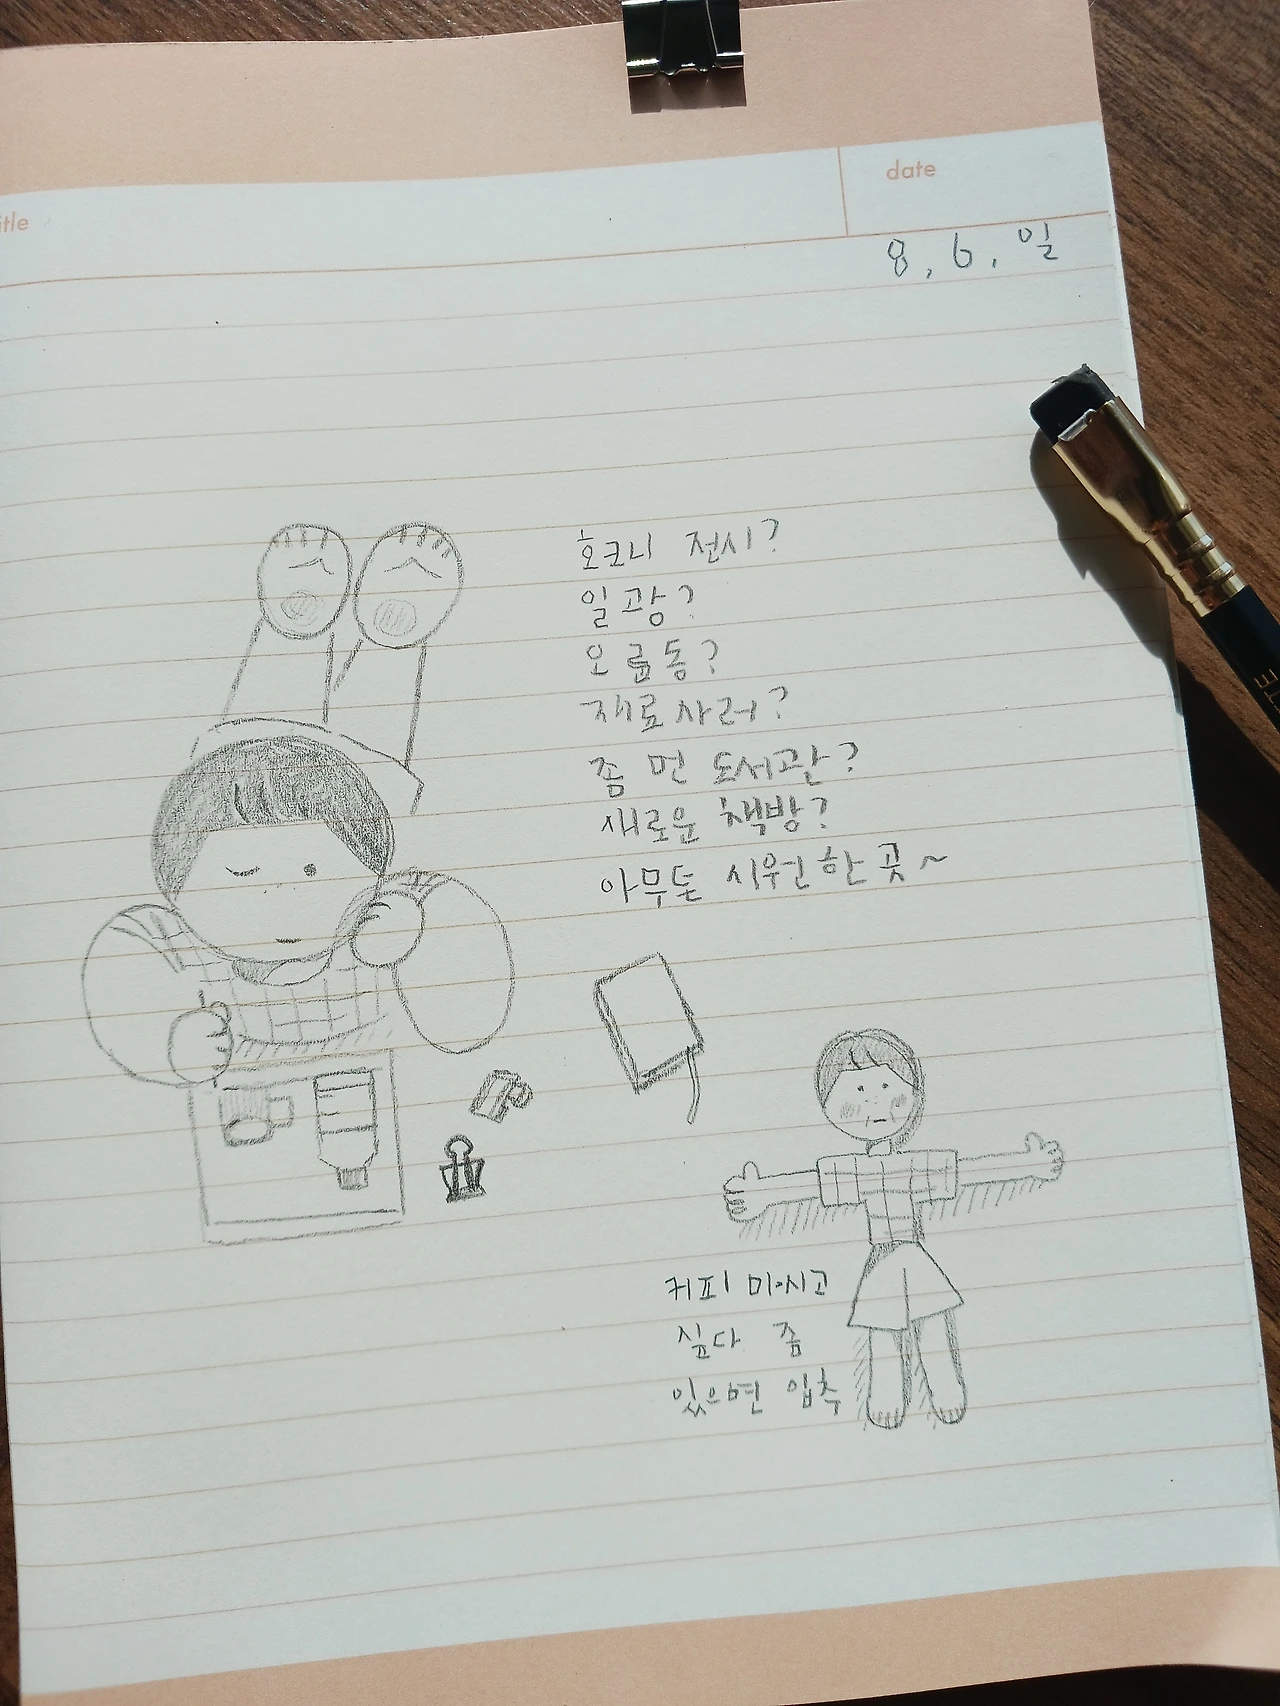 title
date
8. 6. 일
호크니 전시?
일광?
오륜동?
재료 사러?
좀 먼 도서관?
새로운 책방?
아무튼 시원한 곳~
커피 마시고
싶다 좀
있으면 입추